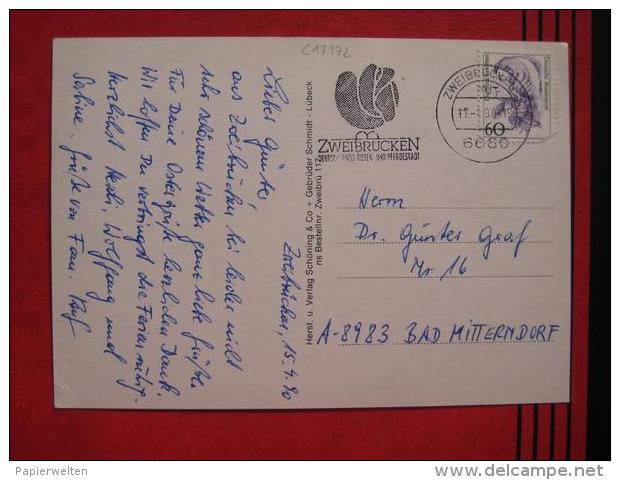 C17172
Zweibrücken, 15.4.90
Lieber Günter,
aus Zweibrücken bei leider nicht
sehr schönem Wetter ganz liebe Grüße.
Für Deine Ostergrüße herzlichen Dank.
Wir hoffen Du verbringst die Ferien ruhig.
Herzlichst Heidi, Wolfgang und
Sabine. Grüße von Frau
ZWEIBRÜCKEN
DEUTSCHLANDS ROSEN- UND PFERDESTADT
ZWEIBRÜCKEN
6660
60
Deutsche Bundespost
Herst. u. Verlag Schöning & Co + Gebrüder Schmidt - Lübeck
ns Bestellnr. Zweibrü 117
Herrn
Dr. Günter Graf
Nr. 16
A-8983 BAD MITTERNDORF
Papierwelten
delcampe.net